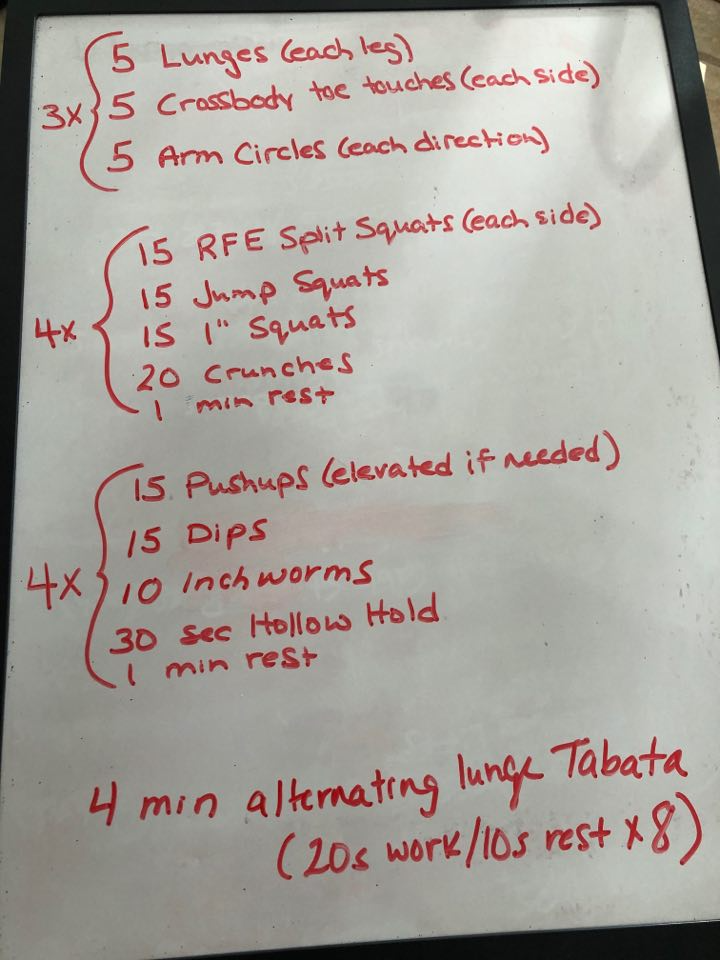 3x
5 Lunges (each leg)
5 Crossbody toe touches (each side)
5 Arm Circles (each direction)
4x
15 RFE Split Squats (each side)
15 Jump Squats
15 1" Squats
20 Crunches
1 min rest
4x
15 Pushups (elevated if needed)
15 Dips
10 Inchworms
30 sec Hollow Hold
1 min rest
4 min alternating lunge Tabata
(20s work/10s rest x8)